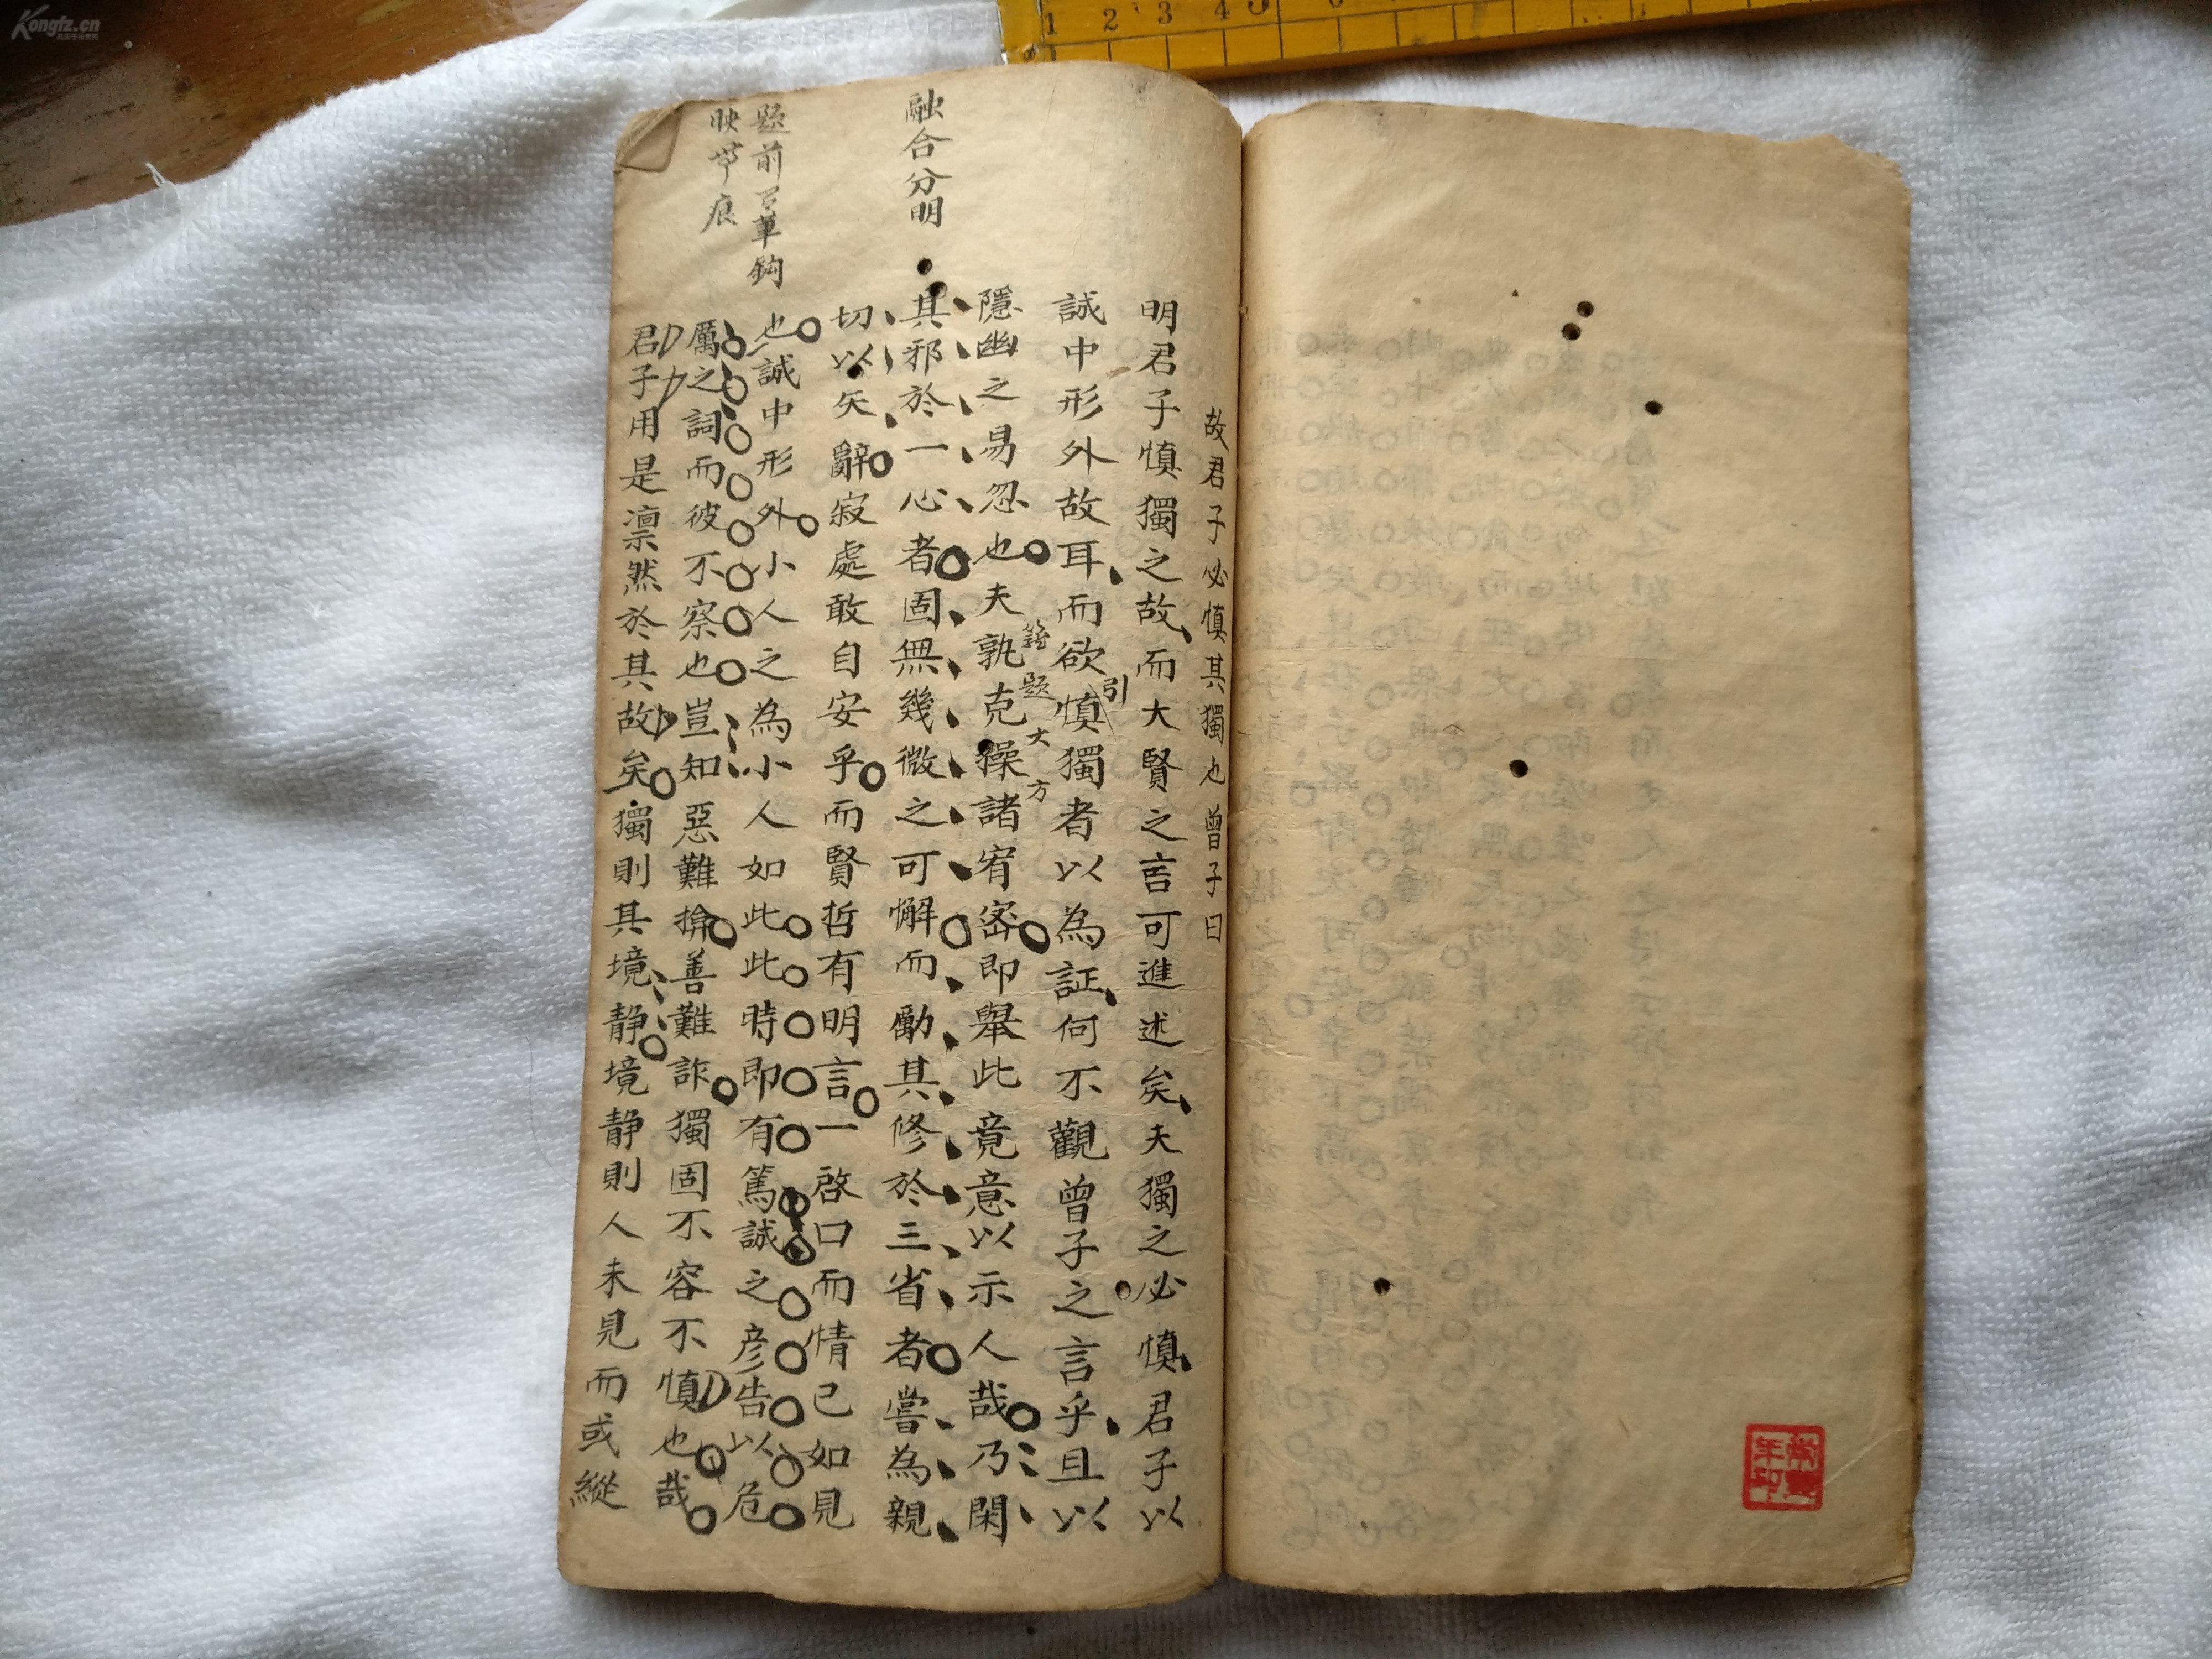 故君子必慎其獨也曾子曰
明君子慎獨之故而大賢之言可進述矣夫獨之必慎君子以
誠中形外故耳而欲慎獨者以為証何不觀曾子之言乎且以
引
隱幽之易忽也夫孰克操諸宥密即舉此竟意以示人哉乃閑
題大方
其邪於一心者固無幾微之可懈而勵其修於三省者嘗為親
融合分明
切以矢辭寂處敢自安乎而賢哲有明言一啓口而情已如見
也誠中形外小人之為小人如此此時即有篤誠之彥告以危
題前 單鈎
厲之詞而彼不察也豈知惡難揜善難詐獨固不容不慎也哉
映 痕
君子用是凛然於其故矣獨則其境静境静則人未見而或縱
1 2 3 4 5 6
Kongfz.cn
年印